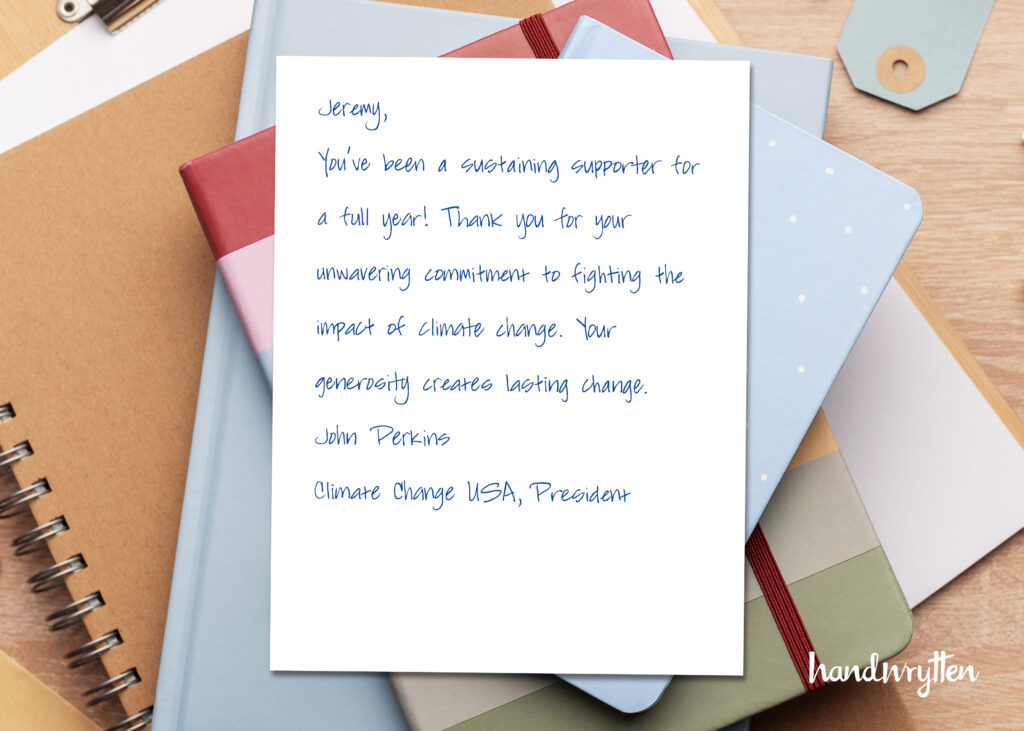 Jeremy,
You've been a sustaining supporter for
a full year! Thank you for your
unwavering commitment to fighting the
impact of climate change. Your
generosity creates lasting change.
John Perkins
Climate Change USA, President
handwrytten